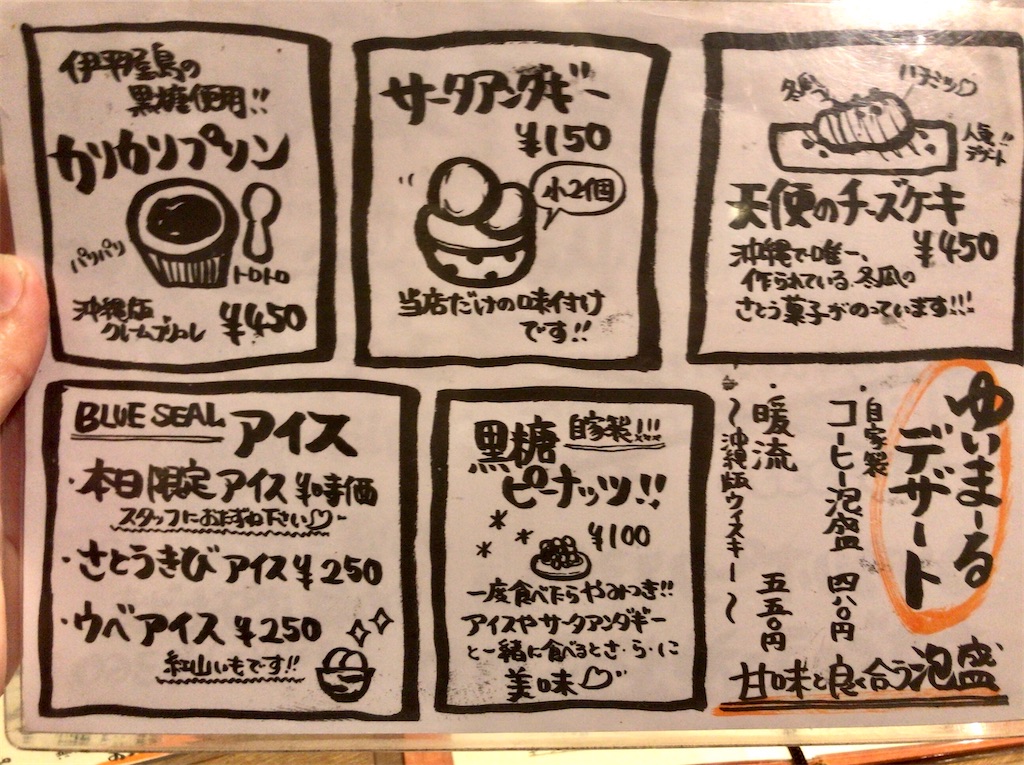 伊平屋島の
黒糖使用!!
カリカリプリン
パリパリ
トロトロ
沖縄版
クレームブリュレ
¥450
サータアンダギー
¥150
小2個
当店だけの味付け
です!!
冬瓜
ハチミツ♡
人気!!
デザート
天使のチーズケーキ
¥450
沖縄で唯一、
作られている、冬瓜の
さとう菓子がのっています!!!
BLUE SEAL アイス
・本日限定アイス ¥時価
スタッフにおたずね下さい♡
・さとうきびアイス ¥250
・ウベアイス ¥250
紅山いもです!!
黒糖 自家製!!!
ピーナッツ!!
¥100
一度食べたらやみつき!!
アイスやサータアンダギー
と一緒に食べるとさ・ら・に
美味♡
ゆいまーる
デザート
・自家製
コーヒー泡盛 四八〇円
・暖流 五五〇円
〜沖縄版ウイスキー〜
甘味と良く合う泡盛